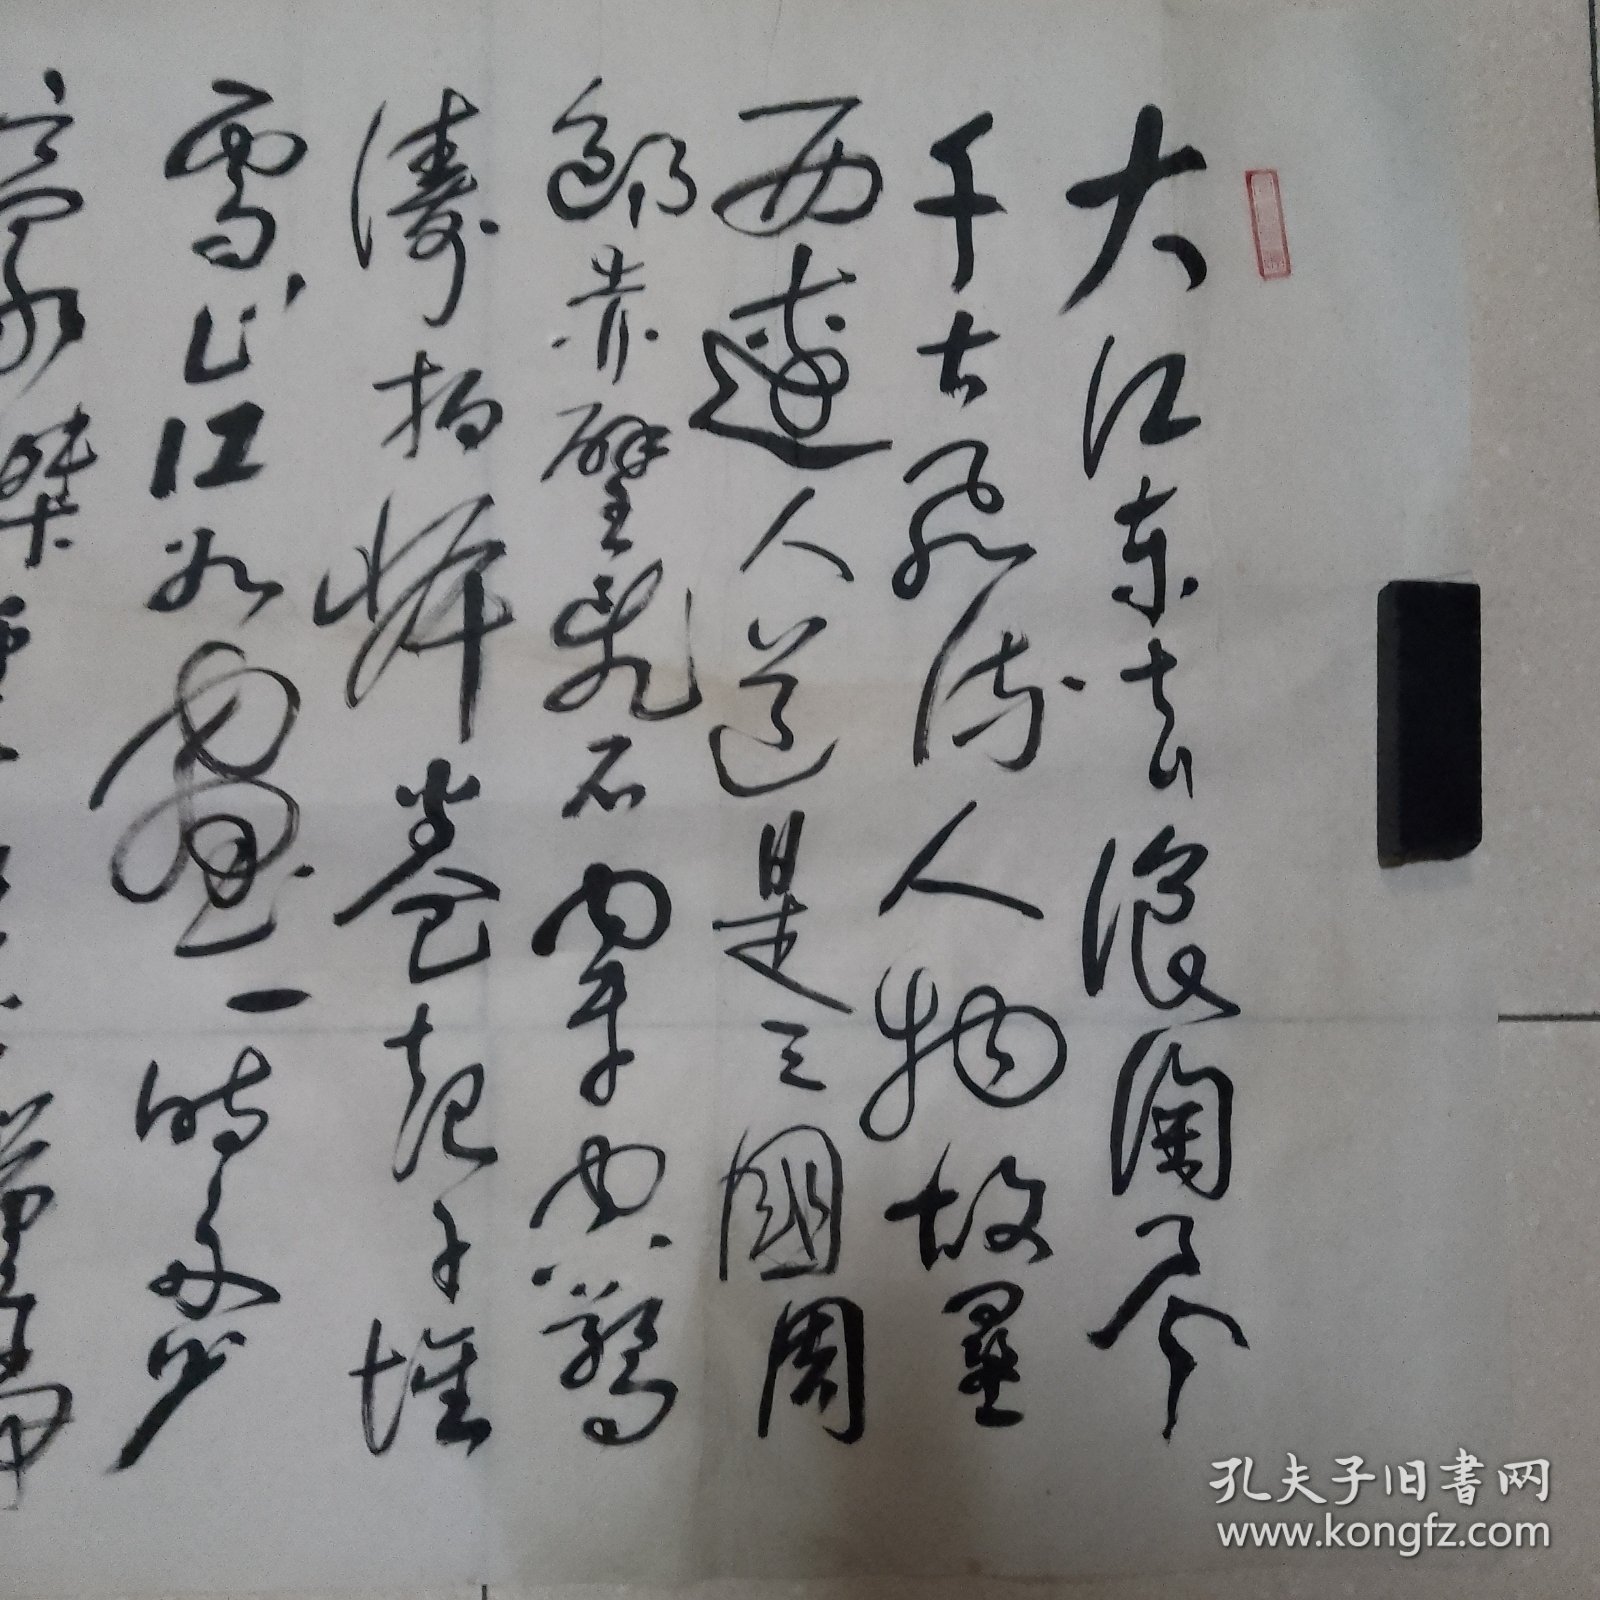 大江东去浪淘尽
千古風流人物故壘
西邊人道是三國周
郎赤壁亂石穿空驚
濤拍岸卷起千堆
雪山江如畫一時多少
豪傑
孔夫子旧書网
www.kongfz.com